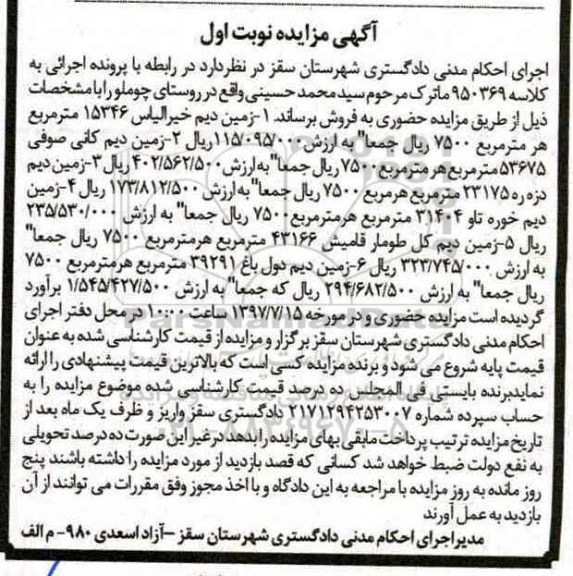 آگهی مزایده نوبت اول
اجرای احکام مدنی دادگستری شهرستان سقز در نظردارد در رابطه با پرونده اجرائی به
کلاسه ۹۵۰۳۶۹ ماترک مرحوم سید محمد حسینی واقع در روستای چوملو را با مشخصات
ذیل از طریق مزایده حضوری به فروش برساند. ۱-زمین دیم خیرالیاس ۱۵۳۴۶ مترمربع
هر مترمربع ۷۵۰۰ ریال جمعا" به ارزش ۱۱۵/۰۹۵/۰۰۰ریال ۲-زمین دیم کانی صوفی
۵۳۶۷۵ مترمربع هر مترمربع ۷۵۰۰ ریال جمعا" به ارزش ۴۰۲/۵۶۲/۵۰۰ ریال ۳-زمین دیم
دزه ره ۲۳۱۷۵ مترمربع هرمربع ۷۵۰۰ ریال جمعا" به ارزش ۱۷۳/۸۱۲/۵۰۰ ریال ۴-زمین
دیم خوره تاو ۳۱۴۰۴ مترمربع هرمترمربع ۷۵۰۰ ریال جمعا" به ارزش ۲۳۵/۵۳۰/۰۰۰
ریال ۵-زمین دیم کل طومار قامیش ۴۳۱۶۶ مترمربع هرمترمربع ۷۵۰۰ ریال جمعا"
به ارزش ۳۲۳/۷۴۵/۰۰۰ ریال ۶-زمین دیم دول باغ ۳۹۲۹۱ مترمربع هرمترمربع ۷۵۰۰
ریال جمعا" به ارزش ۲۹۴/۶۸۲/۵۰۰ ریال که جمعا" به ارزش ۱/۵۴۵/۴۲۷/۵۰۰ برآورد
گردیده است مزایده حضوری و در مورخه ۱۳۹۷/۷/۱۵ ساعت ۱۰:۰۰ در محل دفتر اجرای
احکام مدنی دادگستری شهرستان سقز برگزار و مزایده از قیمت کارشناسی شده به عنوان
قیمت پایه شروع می شود و برنده مزایده کسی است که بالاترین قیمت پیشنهادی را ارائه
نماید برنده بایستی فی المجلس ده درصد قیمت کارشناسی شده موضوع مزایده را به
حساب سپرده شماره ۲۱۷۱۲۹۴۲۵۳۰۰۷ دادگستری سقز واریز و ظرف یک ماه بعد از
تاریخ مزایده ترتیب پرداخت مابقی بهای مزایده را بدهد در غیر این صورت ده درصد تحویلی
به نفع دولت ضبط خواهد شد کسانی که قصد بازدید از مورد مزایده را داشته باشند پنج
روز مانده به روز مزایده با مراجعه به این دادگاه و با اخذ مجوز وفق مقررات می توانند از آن
بازدید به عمل آورند
مدیر اجرای احکام مدنی دادگستری شهرستان سقز –آزاد اسعدی ۹۸۰- م الف